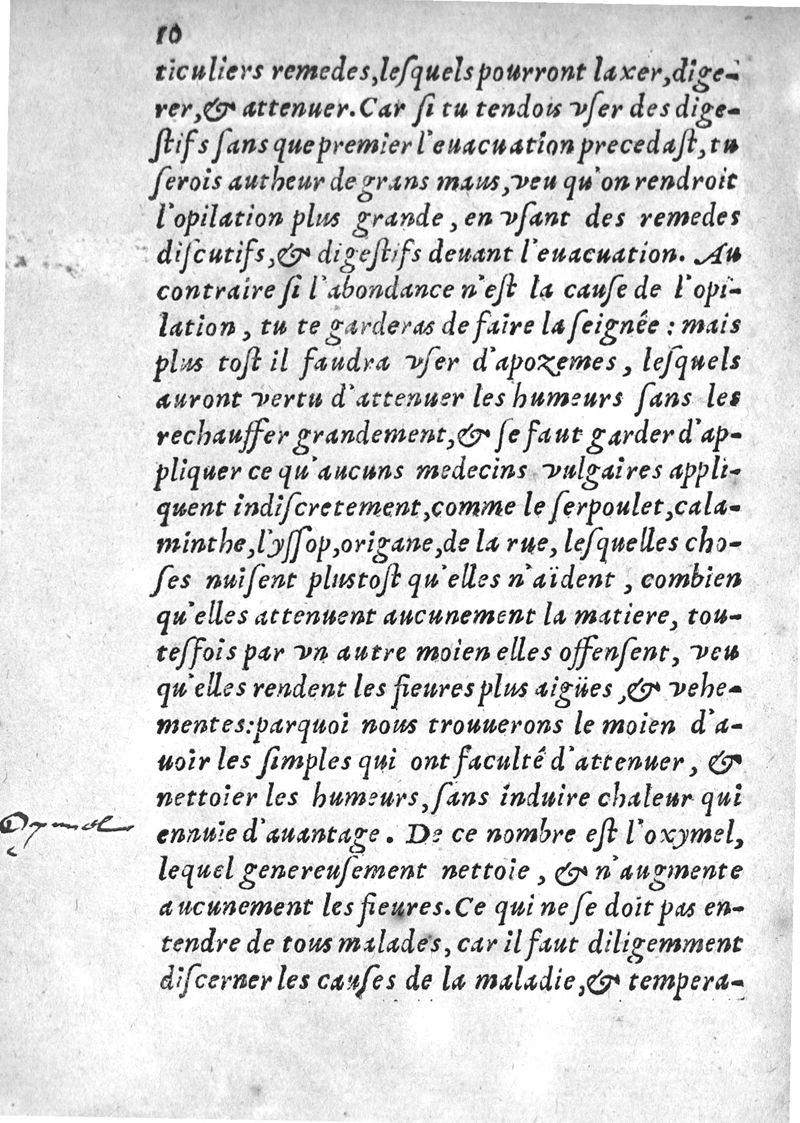 10
ticuliers remedes,leſquels pourront laxer,dige-
rer,& attenuer.Car ſi tu tendois vſer des dige-
ſtifs ſans que premier l'euacuation precedaſt,tu
ſerois autheur de grans maus,veu qu'on rendroit
l'opilation plus grande , en vſant des remedes
diſcutifs,& digeſtifs deuant l'euacuation. Au
contraire ſi l'abondance n'eſt la cauſe de l'opi-
lation , tu te garderas de faire la ſeignée : mais
plus toſt il faudra vſer d'apozemes , leſquels
auront vertu d'attenuer les humeurs ſans les
rechauffer grandement,& ſe faut garder d'ap-
pliquer ce qu'aucuns medecins vulgaires appli-
quent indiſcretement,comme le ſerpoulet,cala-
minthe,l'yſſop,origane,de la rue, leſquelles cho-
ſes nuiſent plustoſt qu'elles n'aïdent , combien
qu'elles attenuent aucunement la matiere, tou-
teſfois par vn autre moien elles offenſent, veu
qu'elles rendent les fieures plus aigües ,& vehe-
mentes:parquoi nous trouuerons le moien d'a-
uoir les ſimples qui ont faculté d'attenuer, &
nettoier les humeurs, ſans induire chaleur qui
Oxymel
ennuie d'auantage . De ce nombre eſt l'oxymel,
lequel genereuſement nettoie , & n'augmente
aucunement les fieures.Ce qui ne ſe doit pas en-
tendre de tous malades, car il faut diligemment
diſcerner les cauſes de la maladie,& tempera-